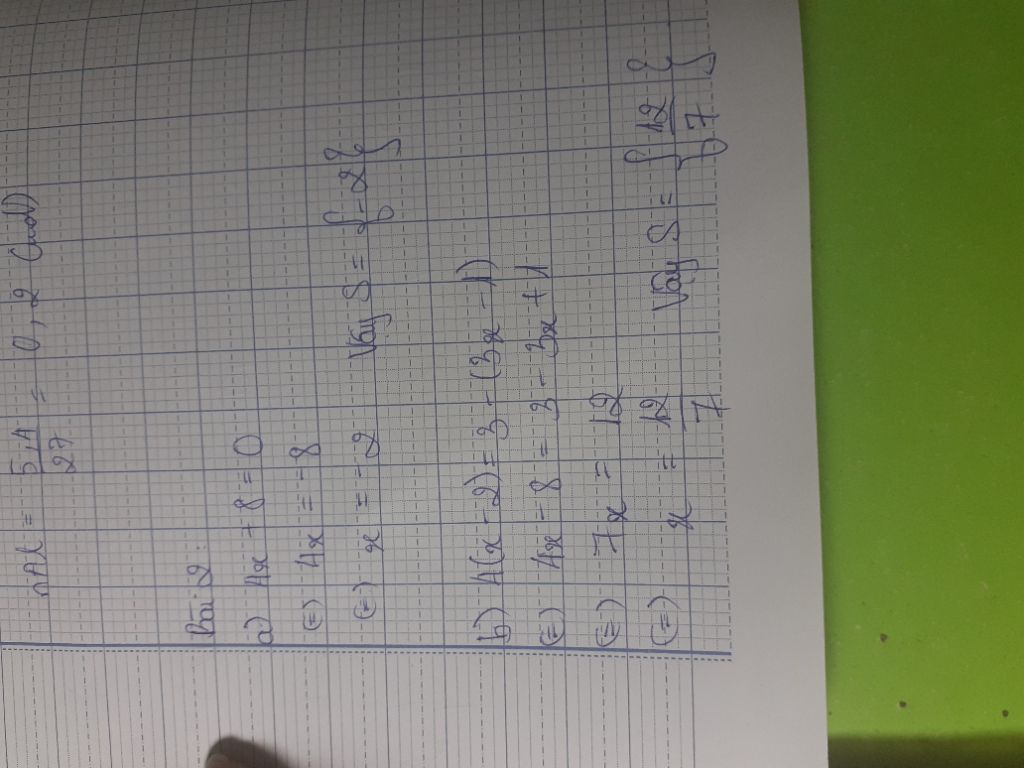 nAl = 5,4/27 = 0,2 (mol)
Bài 2:
a) 4x + 8 = 0
(=) 4x = -8
(=) x = -2 Vậy S = {-2}
b) 4(x - 2) = 3 - (3x - 1)
(=) 4x - 8 = 3 - 3x + 1
(=) 7x = 12
(=) x = 12/7 Vậy S = {12/7}